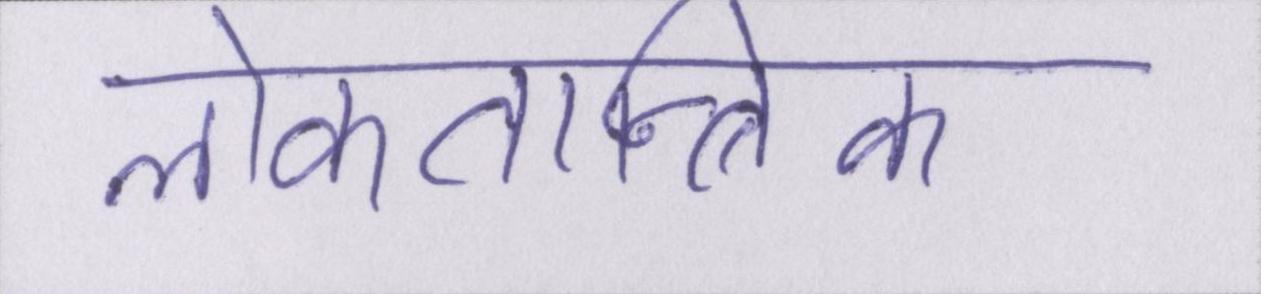 लोकतान्त्रिक